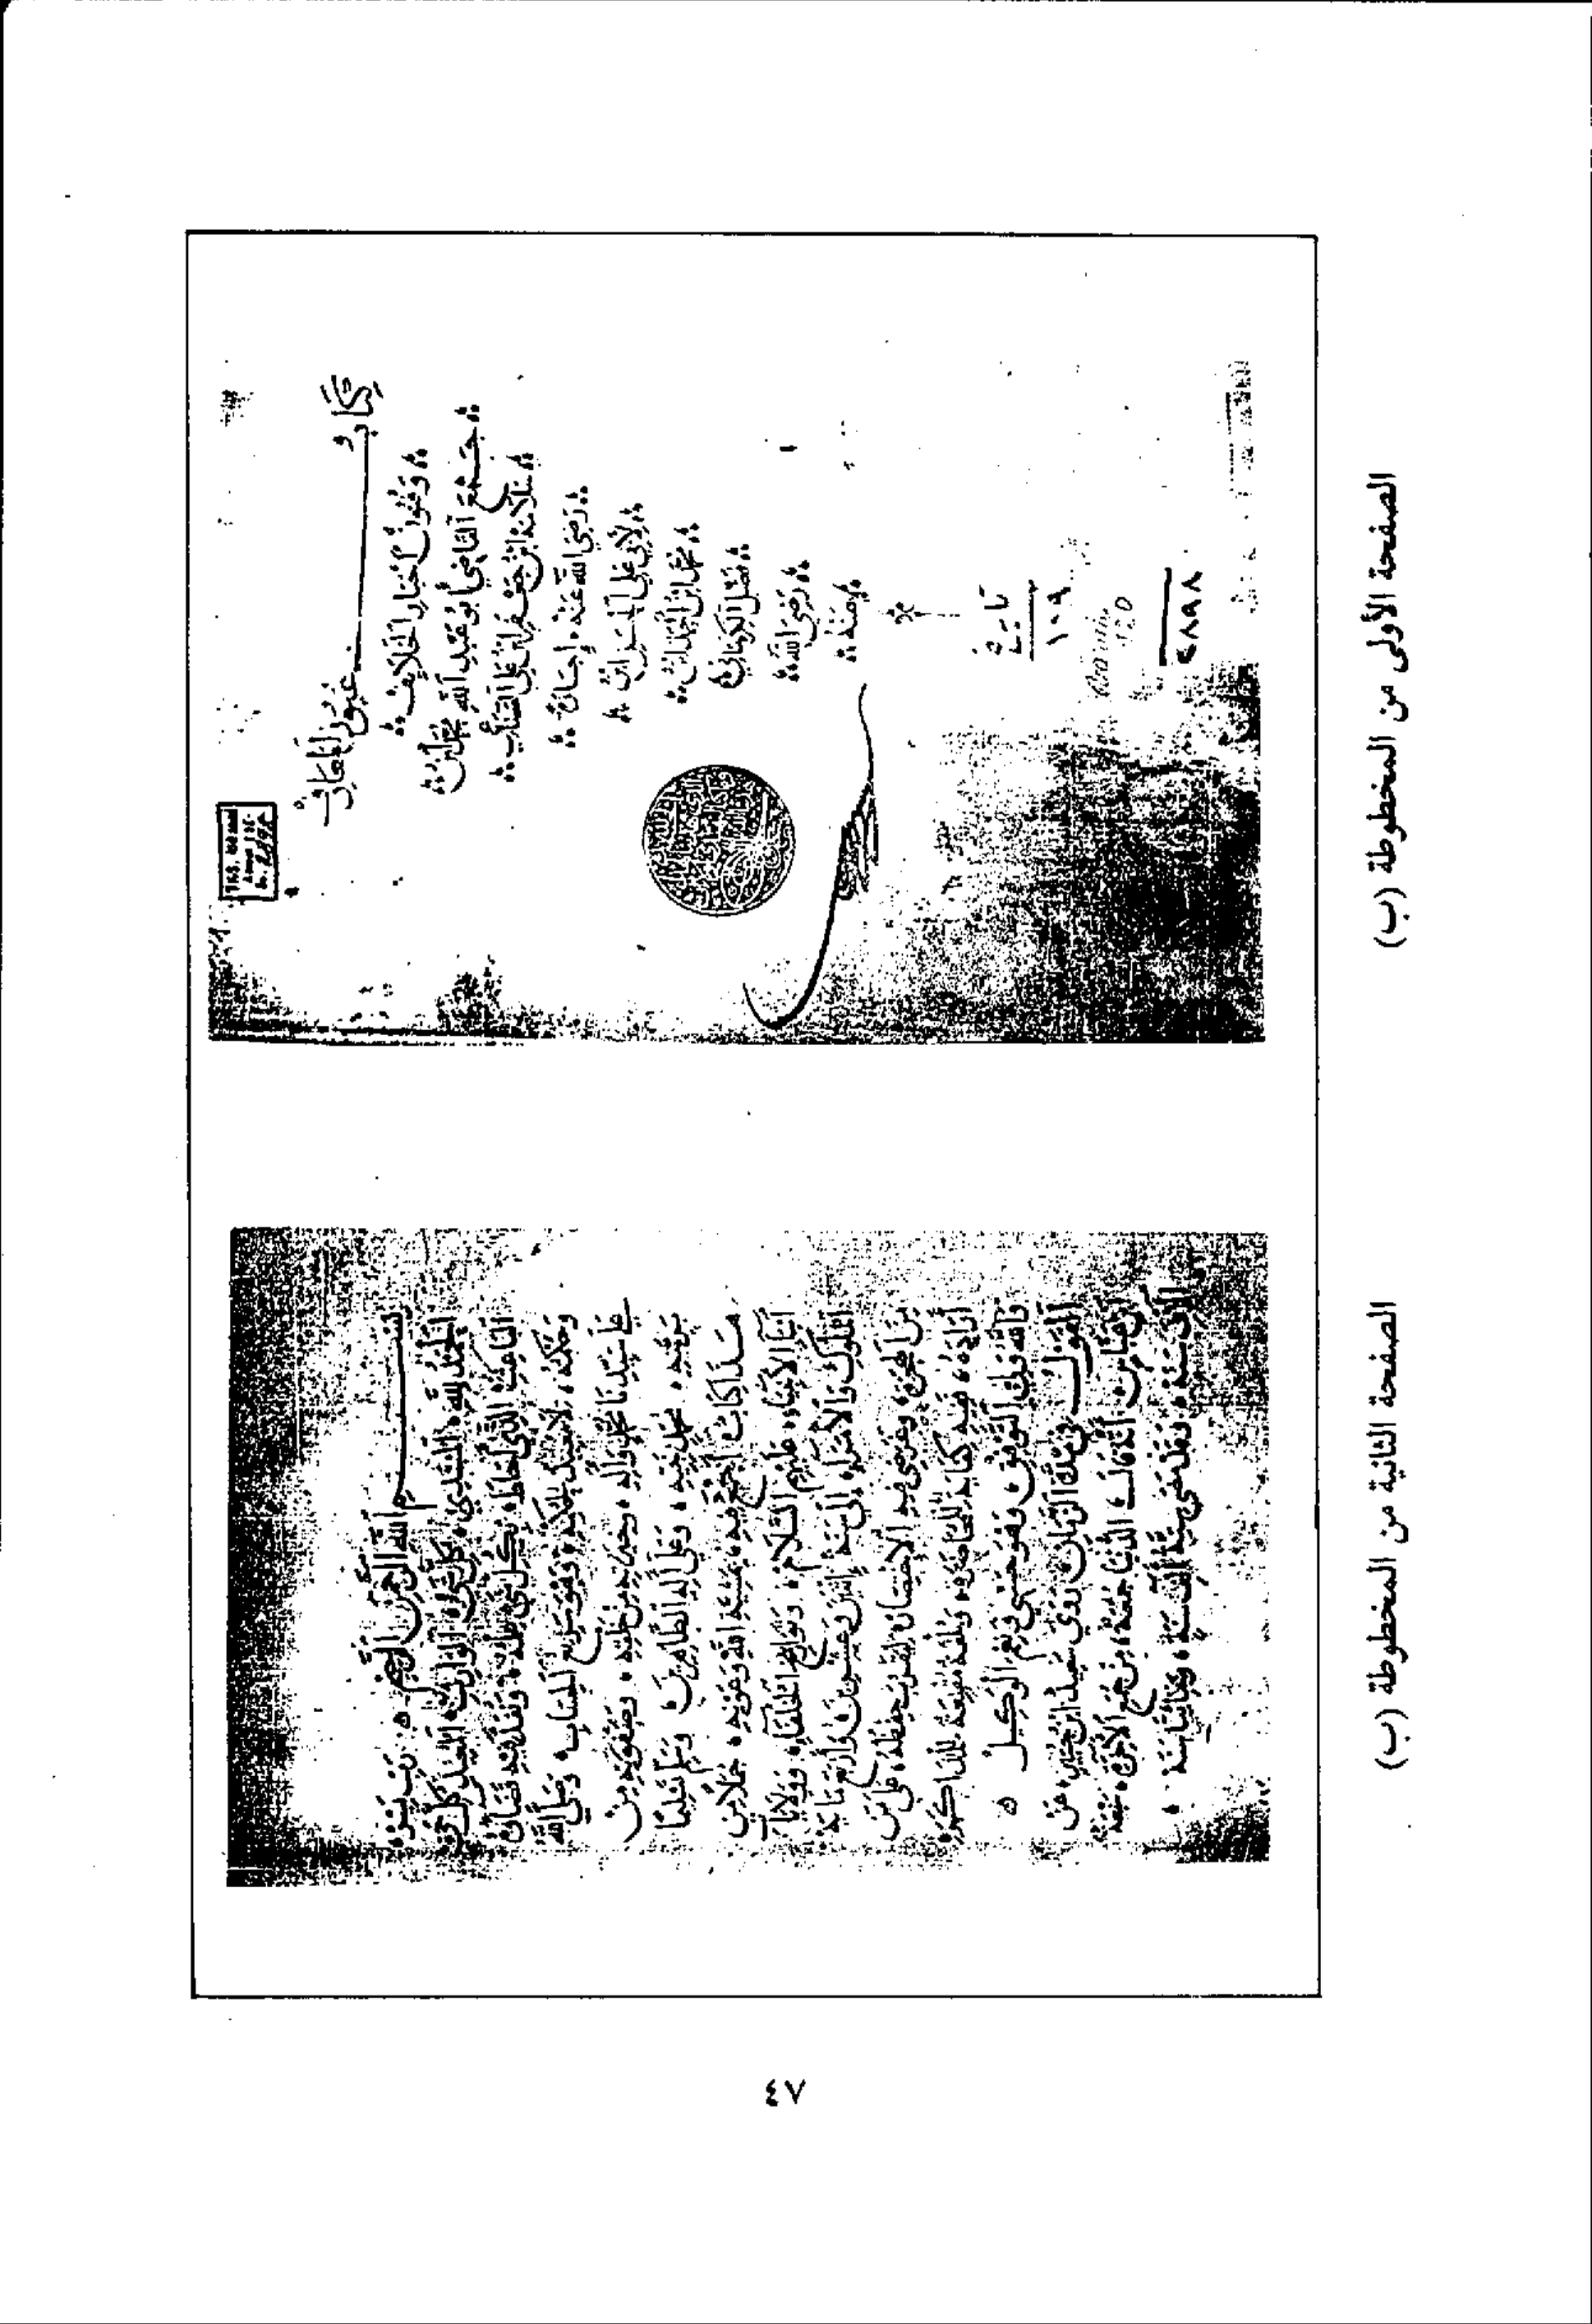 كتاب
عيون المعارف
وفنون أخبار الخلايف
جمع القاضي أبو عبد الله محمد بن
سلامة ابن جعفر ابن علي القضاعي
رضي الله عنه إجازة
لأبي علي الحسن ابن
محمد ابن أحمد ابن
فضل الكرماني
رضي الله
عنه
تاريخ
١٠٩
٢٨٩٨
الصفحة الأولى من المخطوطة (ب)
بسم الله الرحمن الرحيم رب يسر
الحمد لله المبتدي كل شيء الوارث المعيد كل حي
الباعث الذي أحاط بكل شيء علمه ونفذ فيه قضاؤه
وحكمه لا معدل لحكمه وهو سريع الحساب وصلى الله
على سيدنا محمد وآله وخيرته من خلقه وصفوته من
بريته محمد نبيه وعلى آله الطاهرين وسلم تسليما
هذا كتاب أجمع فيه بمشيئة الله وعونه جملا من
أنباء الأنبياء عليهم السلام وتواريخ الخلفاء وولايات
الملوك والأمراء إلى سنة اثنتين وعشرين وأربع ماية
من الهجرة وغرضي فيه الاختصار ليقرب حفظه على من
أراده ففيه كفاية للمحاضرة وبلغة مقنعة للمذاكرة
والله ولي التوفيق وهو حسبي ونعم الوكيل
القول في مدة الزمان روى سعيد ابن جبير عن
ابن عباس أنه قال الدنيا جمعة من جمع الآخرة سبعة
آلاف سنة وقد مضى ستة آلاف سنة
الصفحة الثانية من المخطوطة (ب)
٤٧